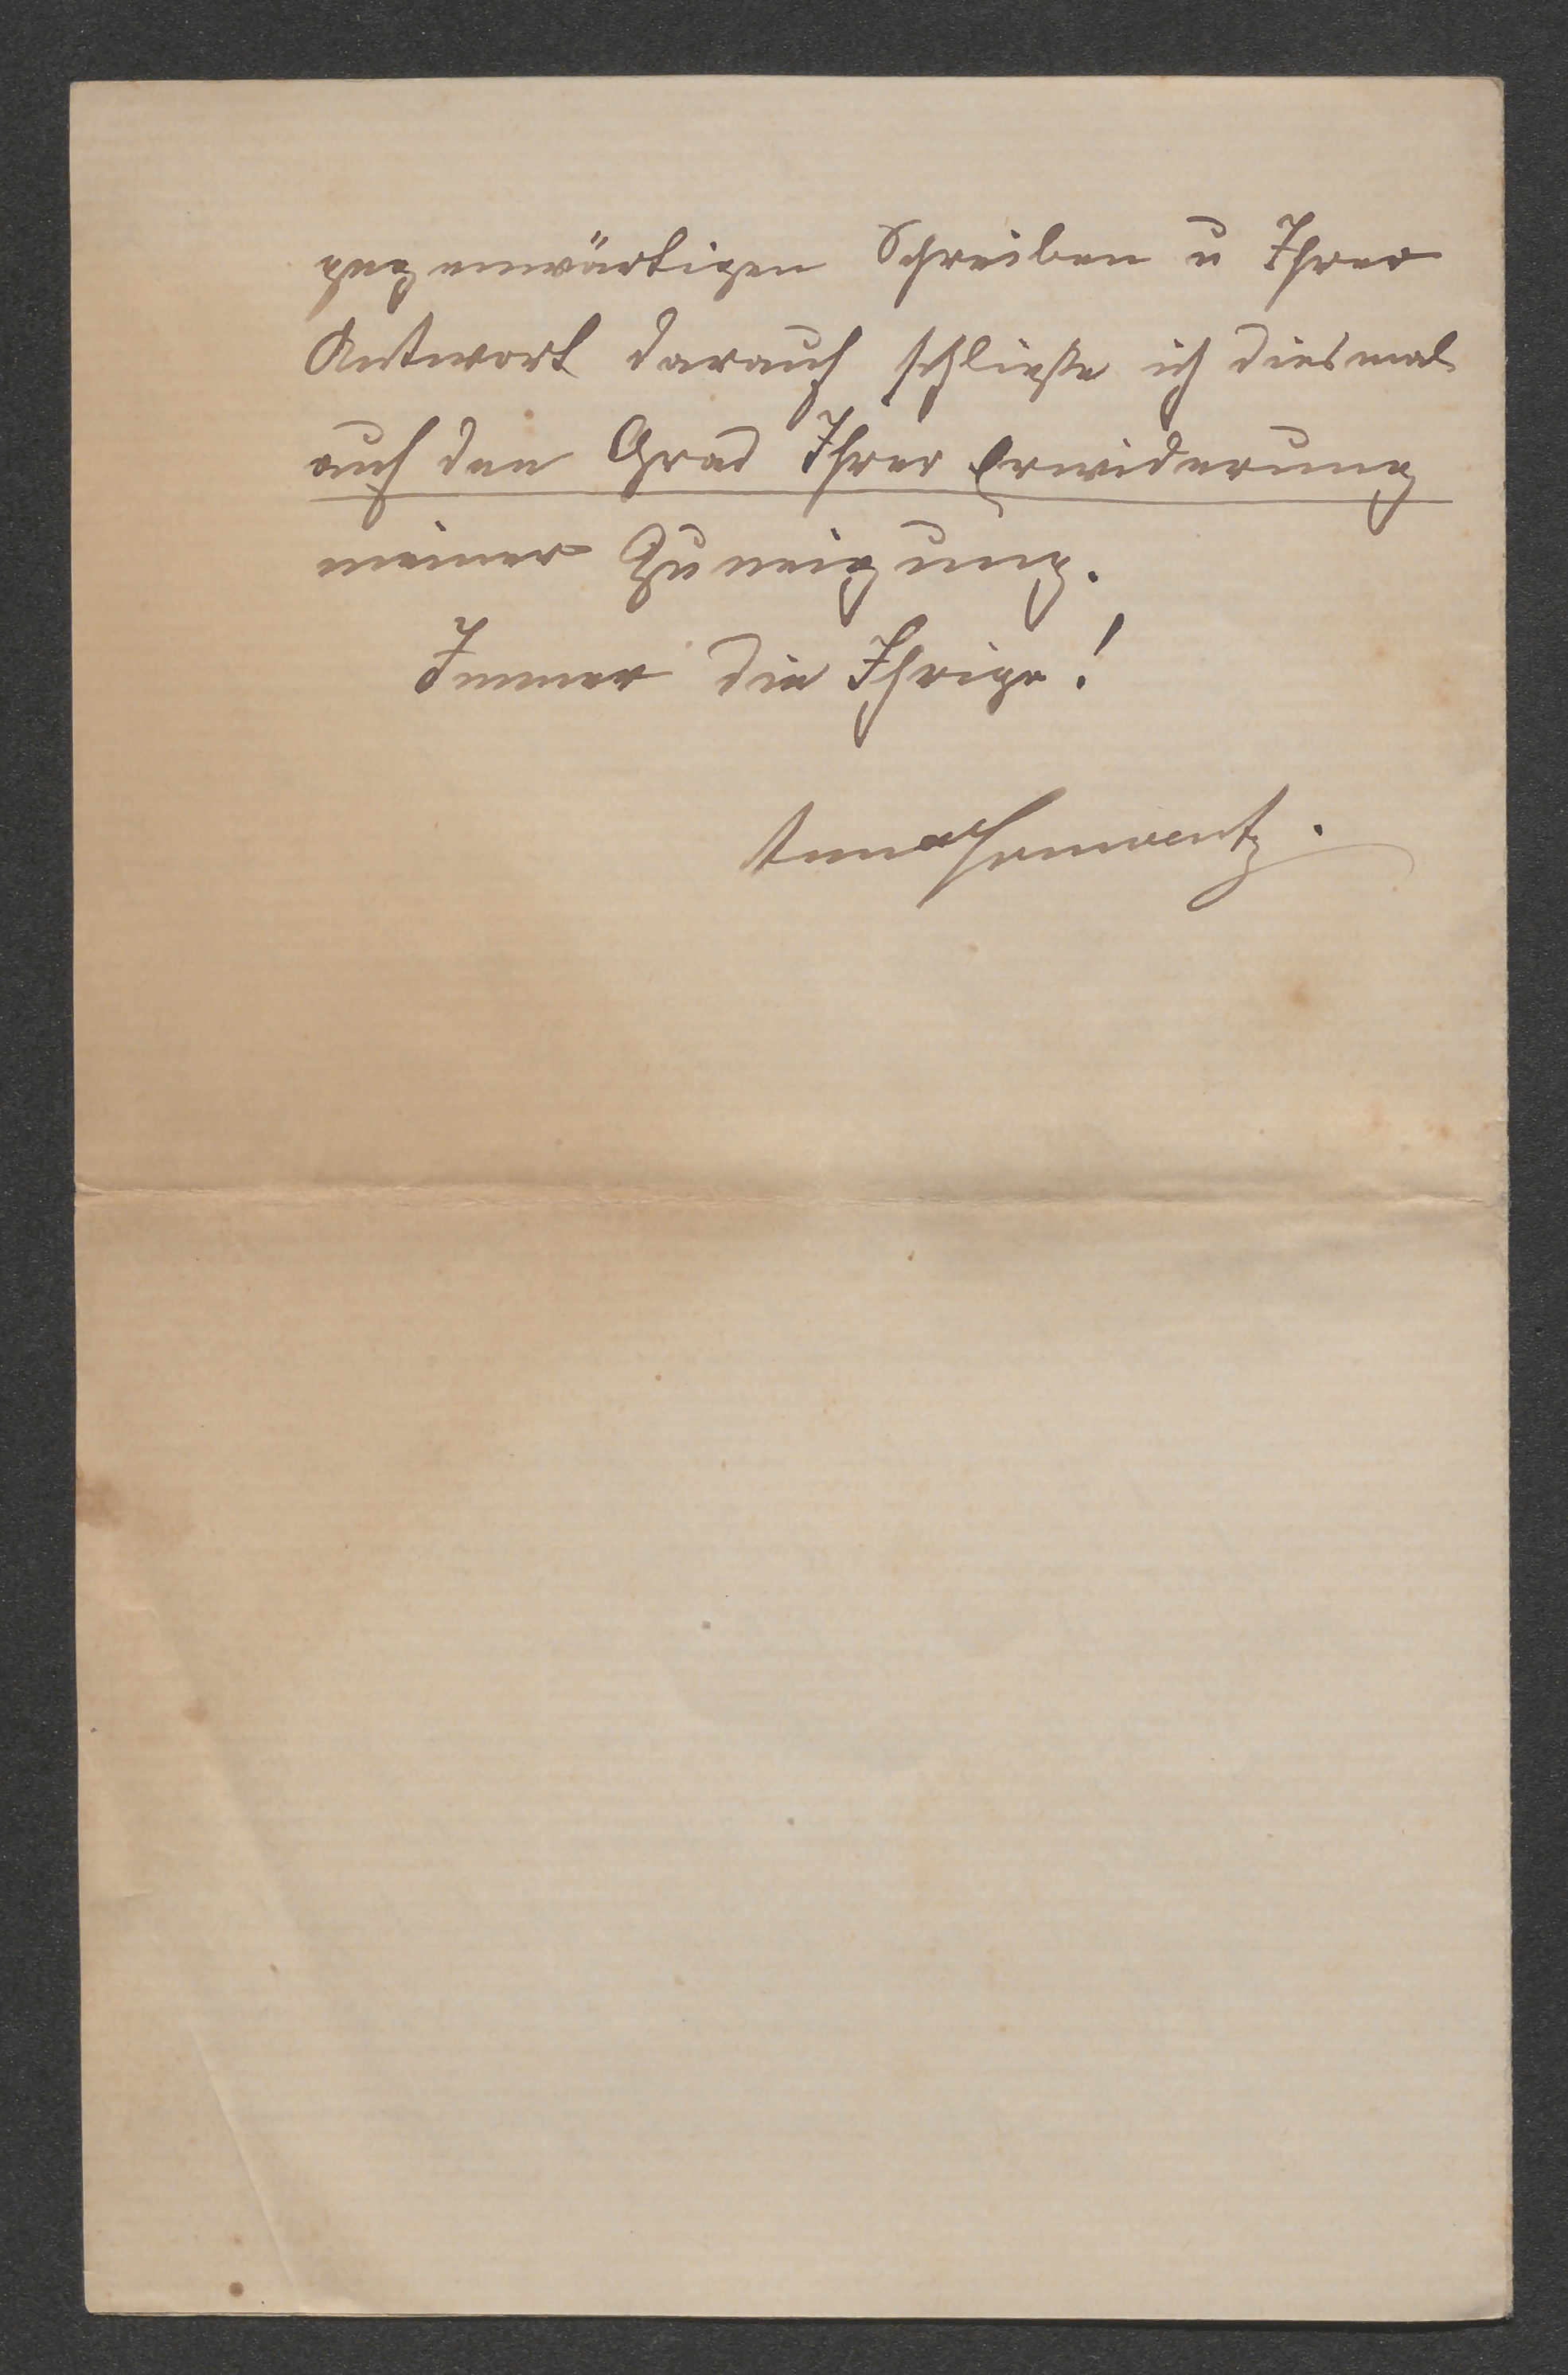 gegenwärtigen Schreiben u Ihrer
Antwort darauf schließe ich diesmal
auf den Grad Ihrer Erwiderung
meiner Zuneigung.
Immer die Ihrige!
Anna